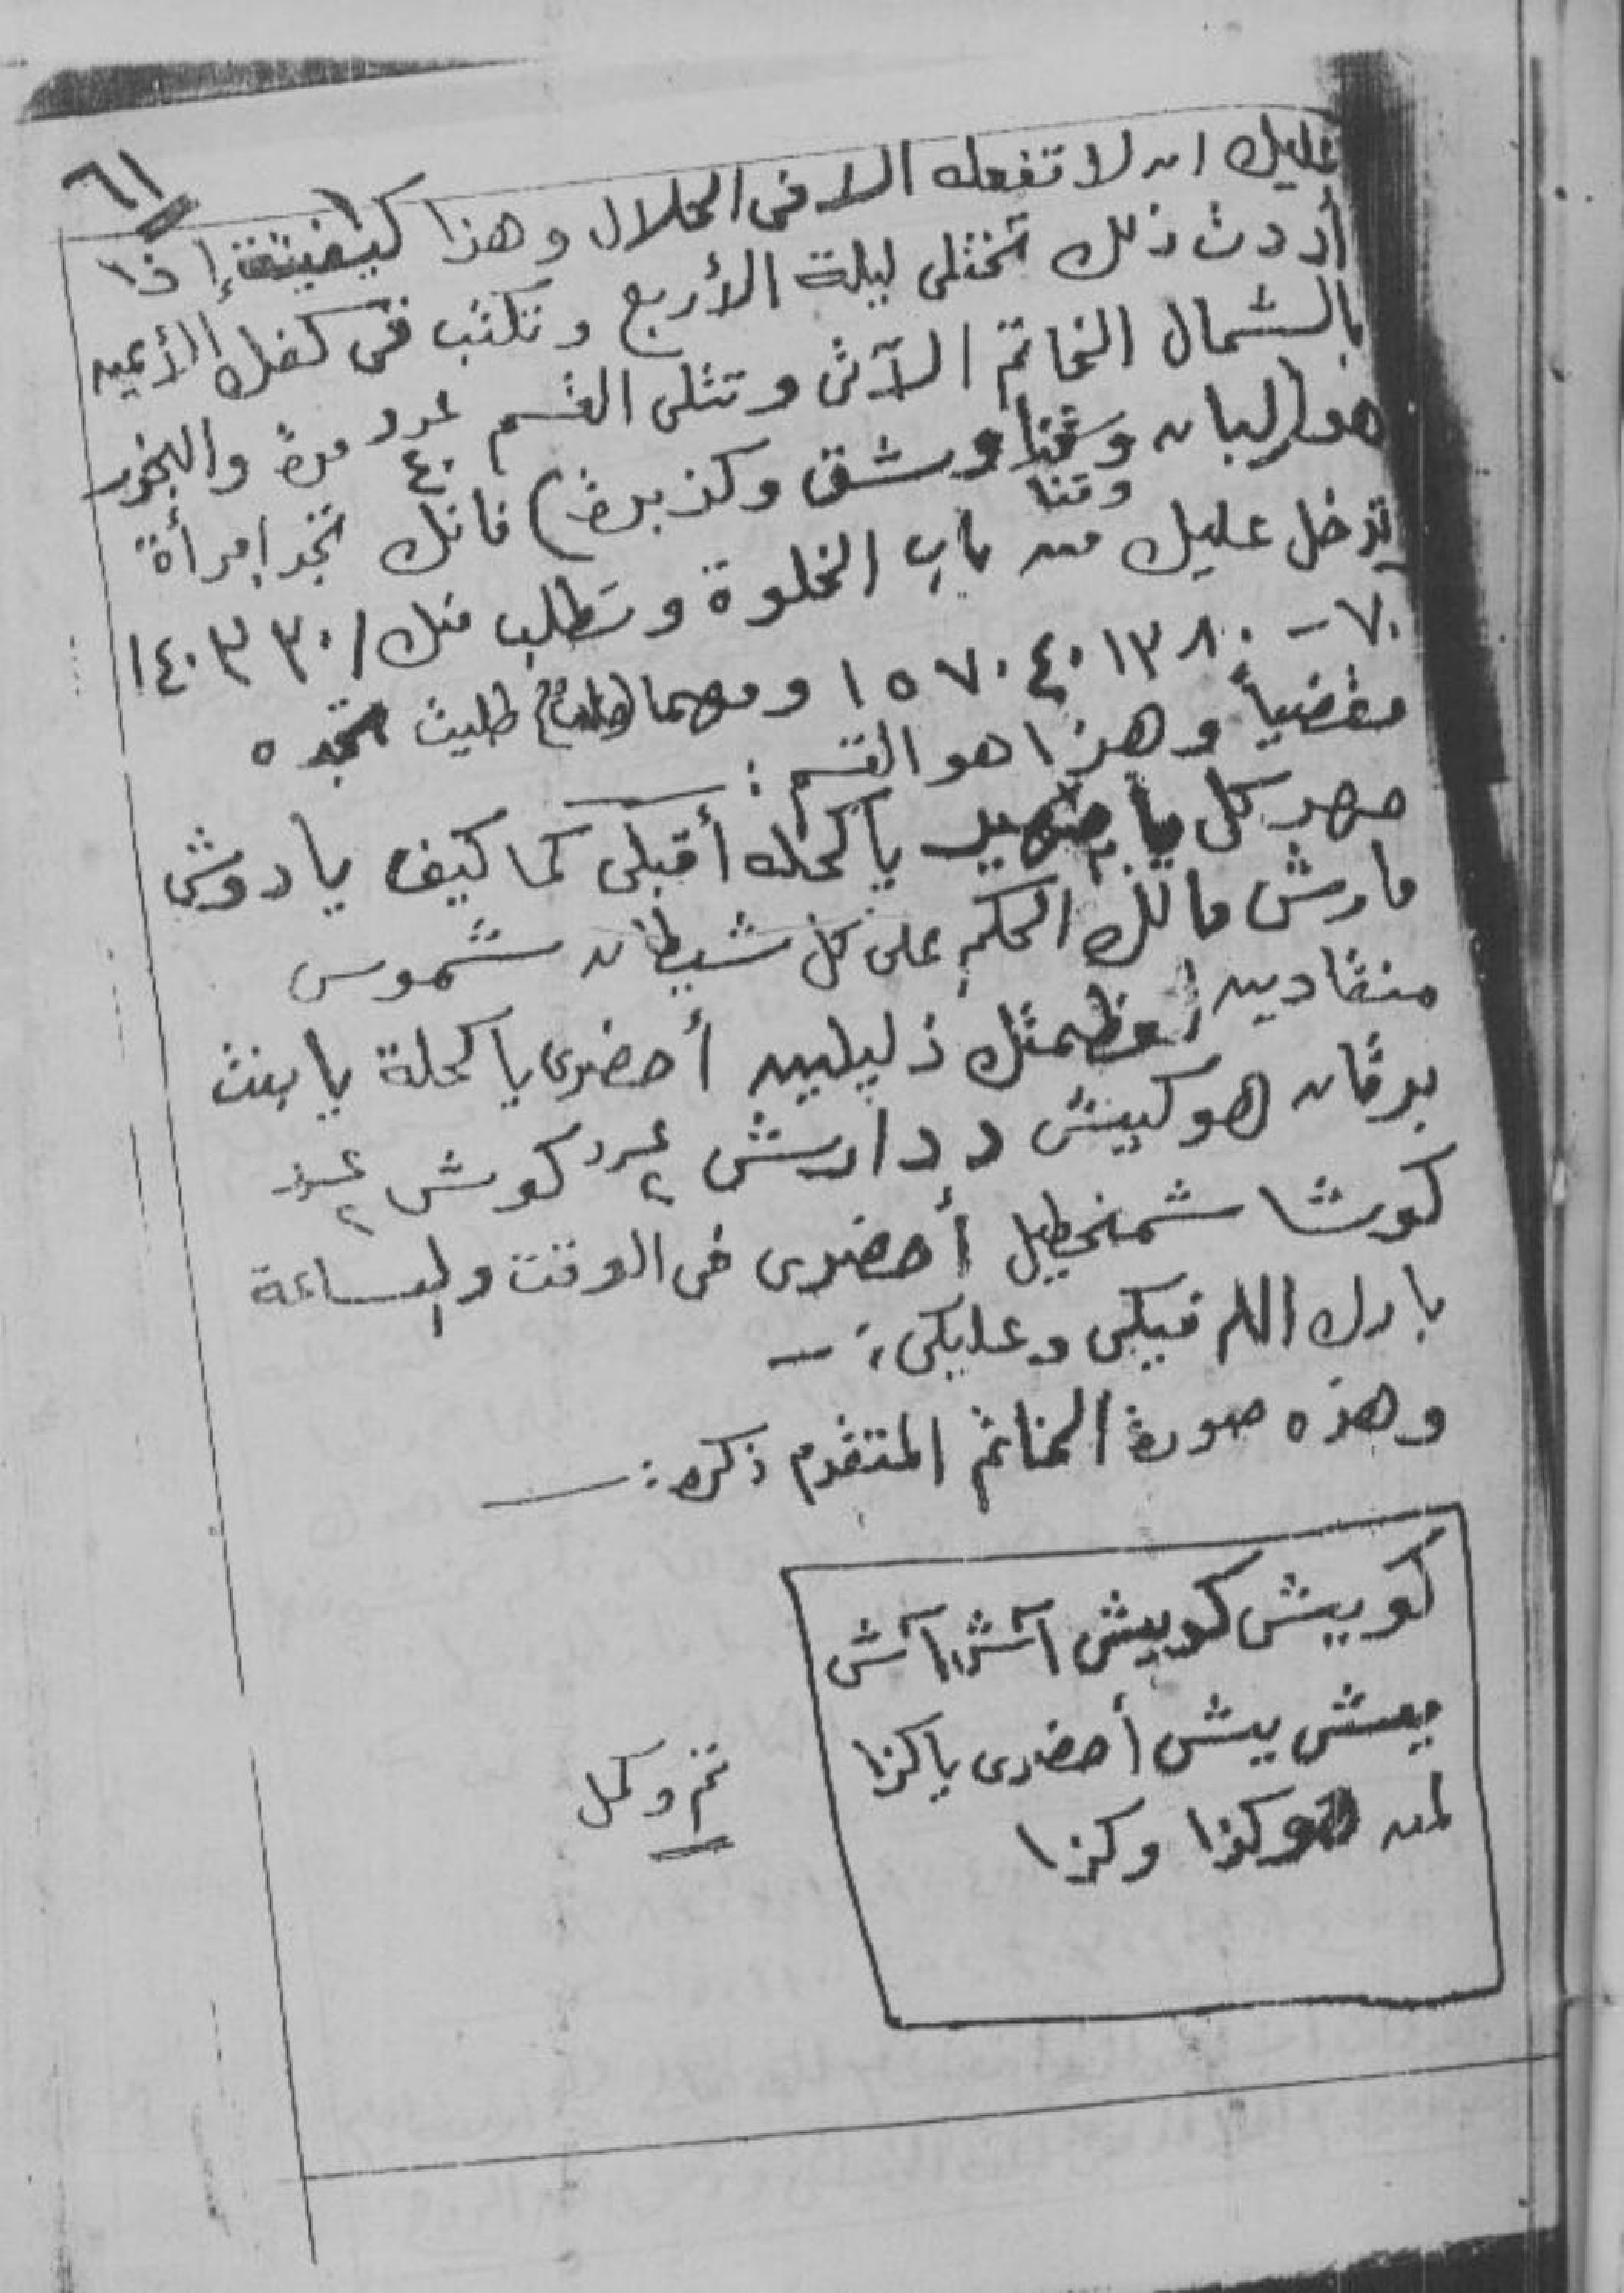 ٦١
عليك ان لا تفعله الا في الحلال وهذا كيفيته إذا
أردت ذلك تختلى ليلة الأربع وتكتب في كفك الأيمن
بالشمال الخاتم الآتى وتتلى القسم عدد ٤٠ مرة والبخور
هو (لبان وشق وكزبرة) فانك تجد إمرأة
وقنا
تدخل عليك من باب الخلوة وتطلب منك / ٣٠ ٣ ١٤٠
٧٠ - ٨٠ ١٣ ٤٠ ٧٠ ١٥ ومهما طلبت تجده
مقضياً وهذا هو القسم :
صهر كل يا يا كحله أقبلى كما كيف يا دوش
مارش مالك الحكم على كل شيطان شموس
منقادين لعظمتك ذليلين أحضرى يا كحلة يا بنت
برقان هوكيش دارش عدد ٢ كوش عدد ٢
كوشا شمخطيل أحضرى في الوقت والساعة
بارك الله فيكى وعليكى : ـ
وهذه صورة الخاتم المتقدم ذكره : ـ
كوييش كوييش آش آش
ييش ييش أحضرى يا كذا
لمن هو كذا وكذا
تم وكمل